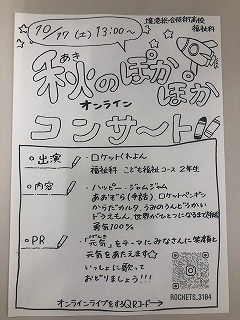 10/17(土)13:00~
境港総合技術高校
福祉科
あき
秋のぽかぽか
オンライン
コンサート
・出演
・ロケットくれよん
福祉科 こども福祉コース 2年生
・内容
・ハッピー・ジャムジャム
あおぞら(手話) ロケットペンギン
からだカルタ、うみのうんどうかい
ドラえもん、世界がひとつになるまで(手話)
勇気100%
・PR
・「元気」をテーマにみなさんに笑顔と
元気をあたえます☆
いっしょに歌って
おどりましょう!!!
オンラインライブをするQRコード→
ROCKETS_3184